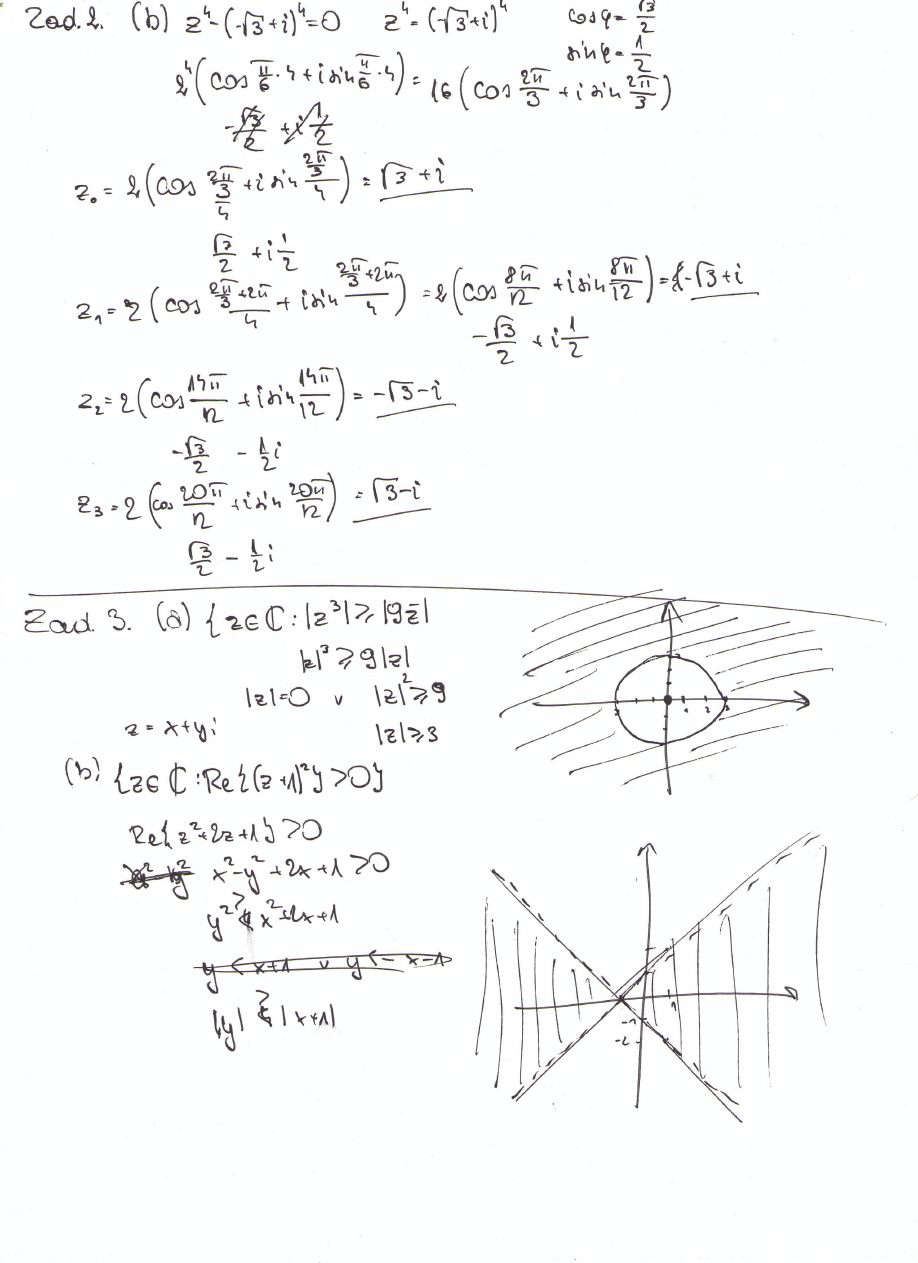 Zad. 2. (b) z⁴-(-√3+i)⁴=0 z⁴=(-√3+i)⁴ cosφ=√3/2
sinφ=1/2
2⁴(cos π/6·4+i sin π/6·4)=16(cos 2π/3+i sin 2π/3)
z₀=2(cos (2π/3)/4+i sin (2π/3)/4)=√3+i
√3/2+i 1/2
z₁=2(cos (2π/3+2π)/4+i sin (2π/3+2π)/4)=2(cos 8π/12+i sin 8π/12)=-√3+i
-√3/2+i 1/2
z₂=2(cos 14π/12+i sin 14π/12)=-√3-i
-√3/2 - 1/2 i
z₃=2(cos 20π/12+i sin 20π/12)=√3-i
√3/2 - 1/2 i
Zad. 3. (a) {z∈ℂ:|z³|≥|9z̄|
|z|³≥9|z|
|z|=0 v |z|²≥9
z=x+yi |z|≥3
(b) {z∈ℂ:Re{(z+1)²}>0}
Re{z²+2z+1}>0
x²-y²+2x+1>0
y²<x²+2x+1
y<x+1 v y<-x-1
|y|<|x+1|
1 2 3
1
-1
-2